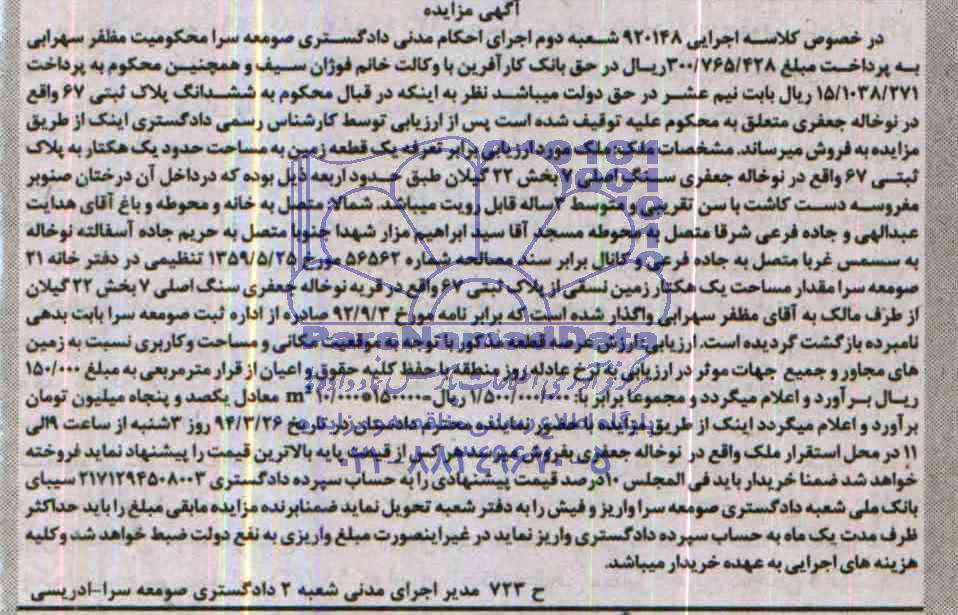 آگهی مزایده
در خصوص کلاسه اجرایی ۹۲۰۱۴۸ شعبه دوم اجرای احکام مدنی دادگستری صومعه سرا محکومیت مظفر سهرابی
به پرداخت مبلغ ۳۰۰/۷۶۵/۴۲۸ریال در حق بانک کارآفرین با وکالت خانم فوژان سیف و همچنین محکوم به پرداخت
۱۵/۱۰۳۸/۲۷۱ ریال بابت نیم عشر در حق دولت میباشد نظر به اینکه در قبال محکوم به ششدانگ پلاک ثبتی ۶۷ واقع
در نوخاله جعفری متعلق به محکوم علیه توقیف شده است پس از ارزیابی توسط کارشناس رسمی دادگستری اینک از طریق
مزایده به فروش میرساند. مشخصات ملک: ملک مورد ارزیابی برابر تعرفه یک قطعه زمین به مساحت حدود یک هکتار به پلاک
ثبتی ۶۷ واقع در نوخاله جعفری سنگ اصلی ۷ بخش ۲۲ گیلان طبق حدود اربعه ذیل بوده که درداخل آن درختان صنوبر
مغروسه دست کاشت با سن تقریبی و متوسط ۳ساله قابل رویت میباشد. شمالا: متصل به خانه و محوطه و باغ آقای هدایت
عبدالهی و جاده فرعی شرقا متصل به محوطه مسجد آقا سید ابراهیم مزار شهدا جنوبا متصل به حریم جاده آسفالته نوخاله
به سسمس غربا متصل به جاده فرعی و کانال برابر سند مصالحه شماره ۵۶۵۶۲ مورخ ۱۳۵۹/۵/۲۵ تنظیمی در دفتر خانه ۲۱
صومعه سرا مقدار مساحت یک هکتار زمین نسقی از پلاک ثبتی ۶۷ واقع در قریه نوخاله جعفری سنگ اصلی ۷ بخش ۲۲ گیلان
از طرف مالک به آقای مظفر سهرابی واگذار شده است که برابر نامه مورخ ۹۲/۹/۳ صادره از اداره ثبت صومعه سرا بابت بدهی
نامبرده بازگشت گردیده است. ارزیابی: ارزش عرصه قطعه مذکور با توجه به موقعیت مکانی و مساحت وکاربری نسبت به زمین
های مجاور و جمیع جهات موثر در ارزیابی به نرخ عادله روز منطقه با حفظ کلیه حقوق و اعیان از قرار مترمربعی به مبلغ ۱۵۰/۰۰۰
ریال برآورد و اعلام میگردد و مجموعا برابر با: ۱/۵۰۰/۰۰۰/۰۰۰ ریال=۱۵۰۰۰۰*۱۰/۰۰۰ m² معادل یکصد و پنجاه میلیون تومان
برآورد و اعلام میگردد اینک از طریق مزایده با حضور نماینده محترم دادستان در تاریخ ۹۴/۳/۲۶ روز ۳شنبه از ساعت ۹الی
۱۱ در محل استقرار ملک واقع در نوخاله جعفری بفروش میرسد هر کس از قیمت پایه بالاترین قیمت را پیشنهاد نماید فروخته
خواهد شد ضمنا خریدار باید فی المجلس ۱۰درصد قیمت پیشنهادی را به حساب سپرده دادگستری ۲۱۷۱۲۹۴۵۰۸۰۰۳ سیبای
بانک ملی شعبه دادگستری صومعه سرا واریز و فیش را به دفتر شعبه تحویل نماید ضمنابرنده مزایده مابقی مبلغ را باید حداکثر
ظرف مدت یک ماه به حساب سپرده دادگستری واریز نماید در غیراینصورت مبلغ واریزی به نفع دولت ضبط خواهد شد وکلیه
هزینه های اجرایی به عهده خریدار میباشد.
ح ۷۲۳ مدیر اجرای مدنی شعبه ۲ دادگستری صومعه سرا-ادریسی
ParsNamadData
۰۲۱-۸۸۳۴۹۶۷۰-۵